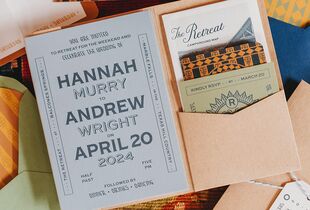 YOU ARE INVITED
TO RETREAT FOR THE WEEKEND AND
CELEBRATE THE WEDDING OF
HANNAH
MURRY
TO
ANDREW
WRIGHT
ON
APRIL 20
2024
HALF
PAST
FIVE
PM
FOLLOWED BY
DINNER • DRINKS • DANCING
THE RETREAT
AT
BALCONES SPRINGS
MARBLE FALLS
TEXAS HILL COUNTRY
The Retreat
CAMPGROUND MAP
KINDLY RSVP
BY
MARCH 20
R